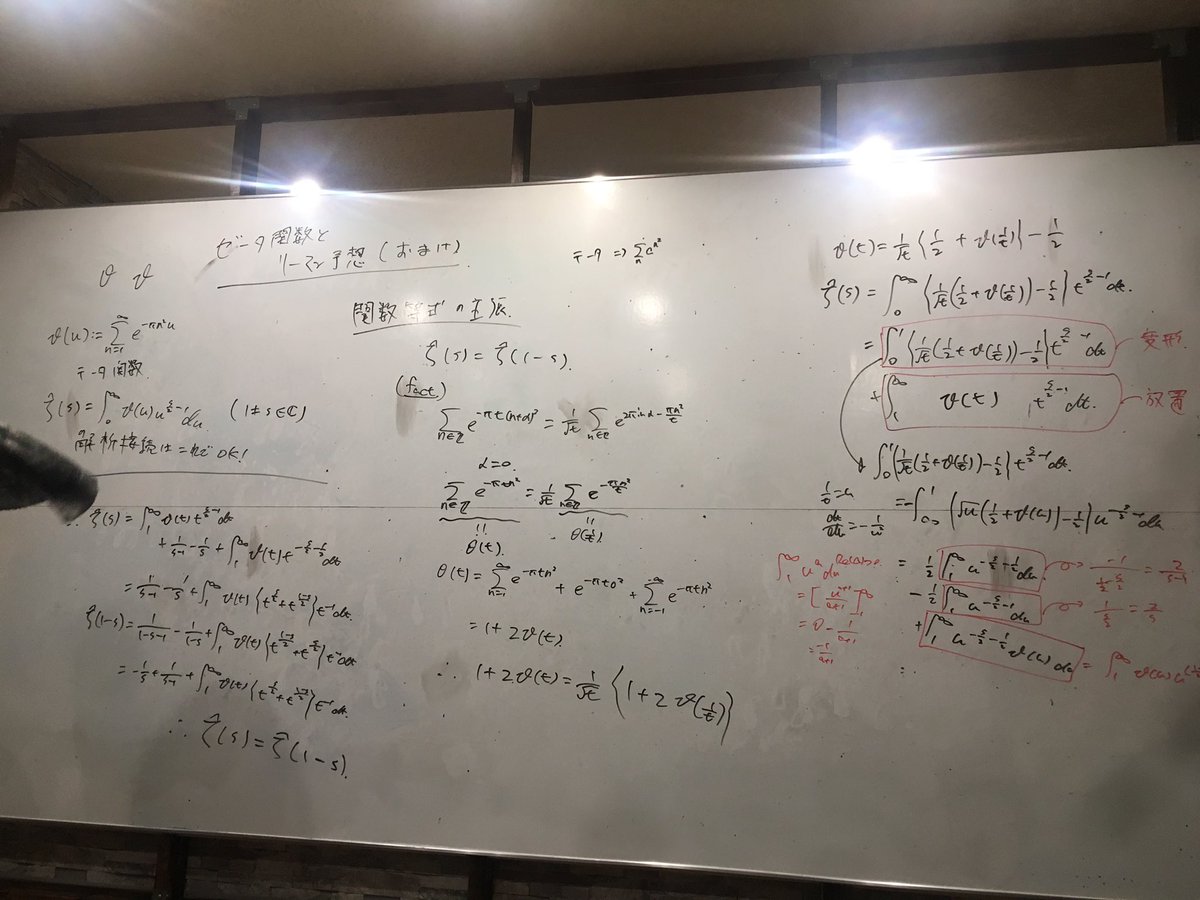 ゼータ関数と
リーマン予想(おまけ)
ϑ ϑ
ϑ(u):=∑_{n=1}^{∞} e^{-πn²u}
テータ関数
ζ̂(s)=∫_0^∞ ϑ(u)u^{s/2-1}du (1≠s∈ℂ)
解析接続はこれでOK!
∴ ζ̂(s)=∫_1^∞ ϑ(t)t^{s/2-1}dt
+1/(s-1)-1/s+∫_1^∞ ϑ(t)t^{-s/2-1/2}dt
=1/(s-1)-1/s+∫_1^∞ ϑ(t){t^{s/2}+t^{(1-s)/2}}t^{-1}dt.
ζ̂(1-s)=1/(1-s-1)-1/(1-s)+∫_1^∞ ϑ(t){t^{(1-s)/2}+t^{s/2}}t^{-1}dt
=-1/s+1/(s-1)+∫_1^∞ ϑ(t){t^{s/2}+t^{(1-s)/2}}t^{-1}dt.
∴ ζ̂(s)=ζ̂(1-s)
テータ ⇒ ∑_n a^{n²}
関数等式の主張.
ζ̂(s)=ζ̂(1-s).
(fact)
∑_{n∈ℤ} e^{-πt(n+α)²}=1/√t ∑_{n∈ℤ} e^{2πinα-πn²/t}
α=0.
∑_{n∈ℤ} e^{-πtn²}=1/√t ∑_{n∈ℤ} e^{-πn²/t}
θ(t). θ(1/t).
θ(t)=∑_{n=1}^{∞} e^{-πtn²}+e^{-πt0²}+∑_{n=-1}^{-∞} e^{-πtn²}
=1+2ϑ(t).
∴ 1+2ϑ(t)=1/√t {1+2ϑ(1/t)}
ϑ(t)=1/√t {1/2+ϑ(1/t)}-1/2
ζ̂(s)=∫_0^∞ {1/√t(1/2+ϑ(1/t))-1/2}t^{s/2-1}dt.
=∫_0^1 {1/√t(1/2+ϑ(1/t))-1/2}t^{s/2-1}dt 変形
+∫_1^∞ ϑ(t) t^{s/2-1}dt. 放置
∫_0^1 {1/√t(1/2+ϑ(1/t))-1/2}t^{s/2-1}dt.
1/t=u
dt/du=-1/u²
=-∫_∞^1 {√u(1/2+ϑ(u))-1/2}u^{-s/2-1}du
=1/2 ∫_1^∞ u^{-s/2-1/2}du → = 2/(s-1)
-1/2 ∫_1^∞ u^{-s/2-1}du → 1/(s/2)=2/s
+∫_1^∞ u^{-s/2-1/2}ϑ(u)du = ∫_1^∞
∫_1^∞ u^a du
=[u^{a+1}/(a+1)]_1^∞
=0-1/(a+1)
=-1/(a+1)